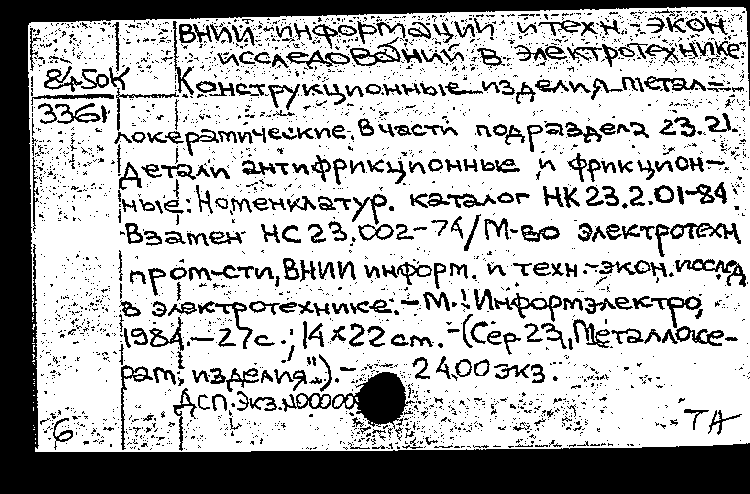 ВНИИ информации и техн.-экон.
исследований в электротехнике
84-50К
Конструкционные изделия метал-
3361
локерамические. В части подраздела 23.21.
Детали антифрикционные и фрикцион-
ные: Номенклатур. каталог НК 23.2.01-84.
Взамен НС 23.002-74/М-во электротехн
пром-сти, ВНИИ информ. и техн.-экон. исслед
в электротехнике. - М.: Информэлектро,
1984. - 27с.; 14×22 см. - (Сер. 23 „Металлоке-
рам. изделия"). - 2400 экз.
ДСП. Экз. N00000
6
ТА